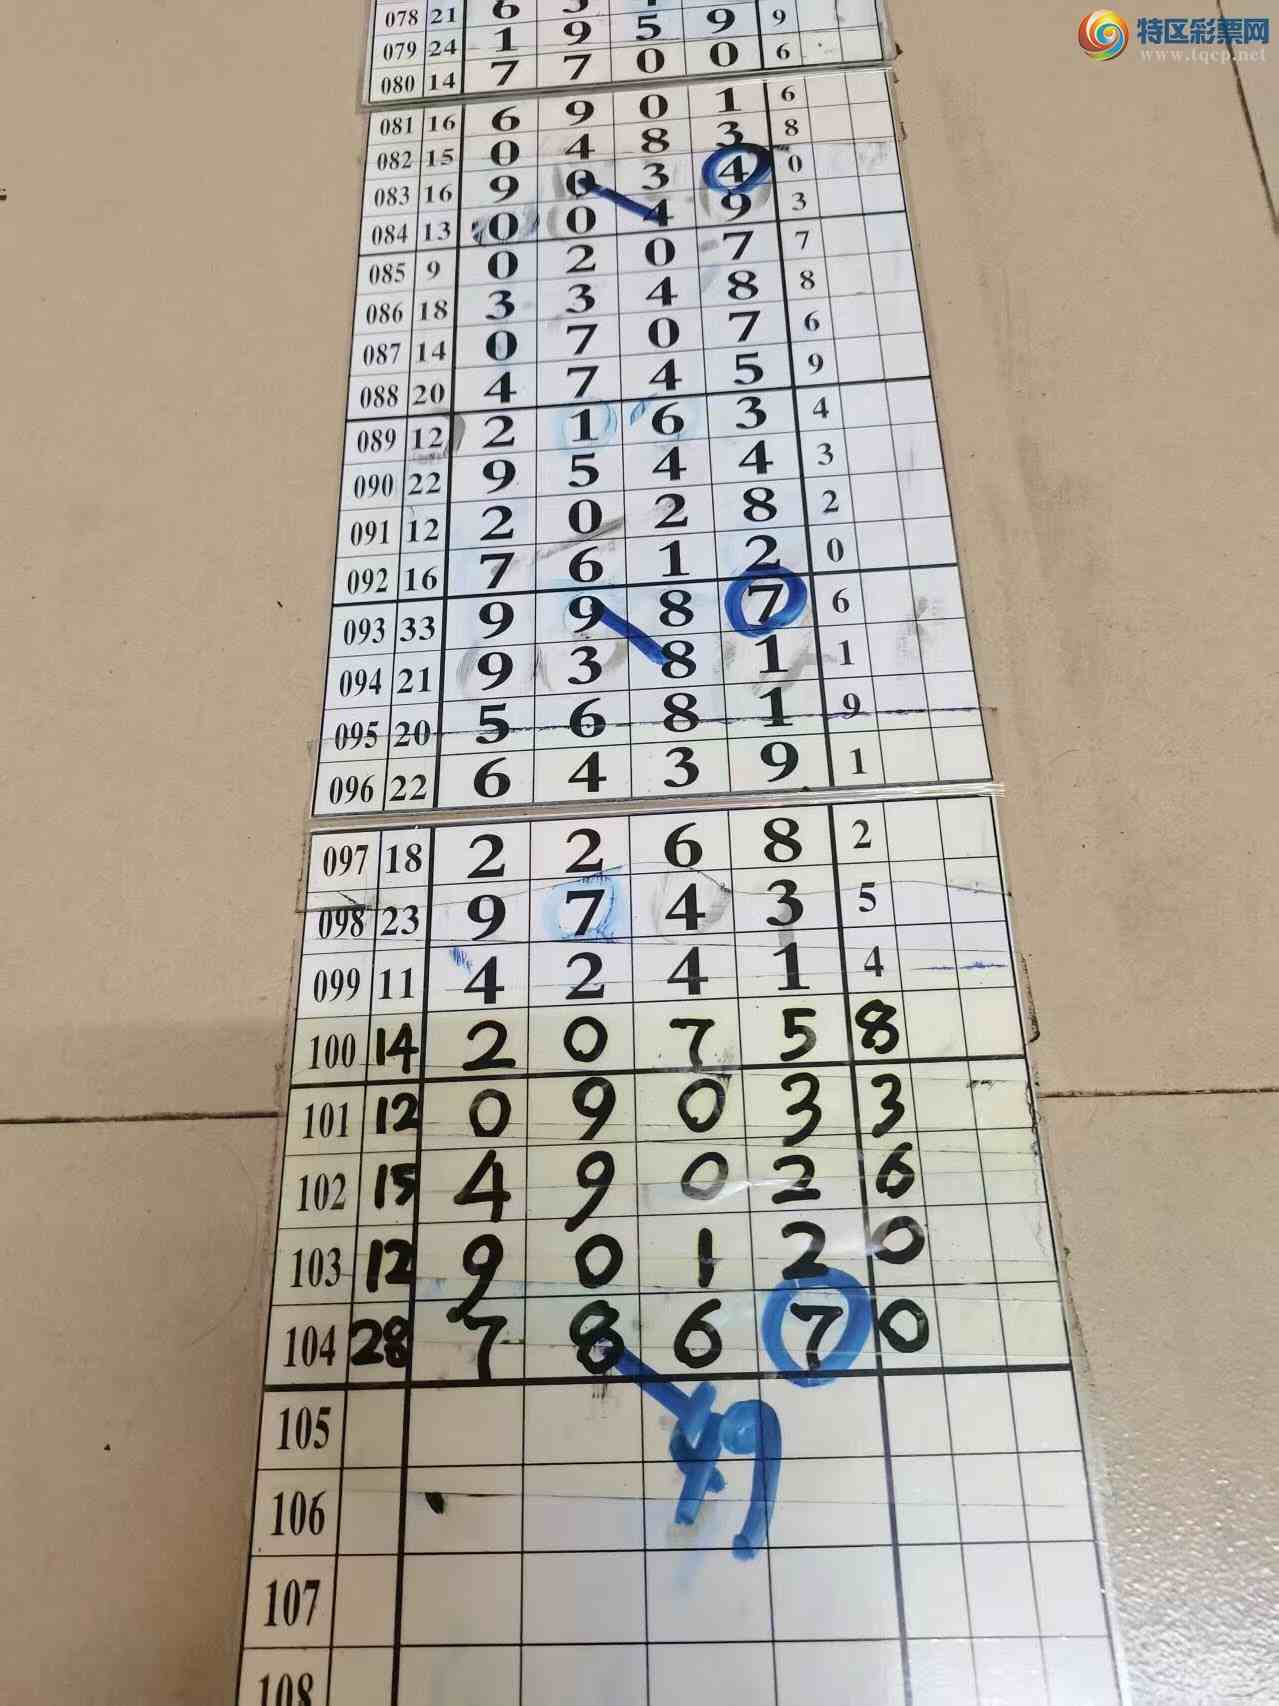 特区彩票网
www.tqcp.net
078 21 6 9
079 24 1 9 5 9 6
080 14 7 7 0 0
081 16 6 9 0 1 6
082 15 0 4 8 3 8
083 16 9 0 3 4 0
084 13 0 0 4 9 3
085 9 0 2 0 7 7
086 18 3 3 4 8 8
087 14 0 7 0 7 6
088 20 4 7 4 5 9
089 12 2 1 6 3 4
090 22 9 5 4 4 3
091 12 2 0 2 8 2
092 16 7 6 1 2 0
093 33 9 9 8 7 6
094 21 9 3 8 1 1
095 20 5 6 8 1 9
096 22 6 4 3 9 1
097 18 2 2 6 8 2
098 23 9 7 4 3 5
099 11 4 2 4 1 4
100 14 2 0 7 5 8
101 12 0 9 0 3 3
102 15 4 9 0 2 6
103 12 9 0 1 2 0
104 28 7 8 6 7 0
105
106
107
108